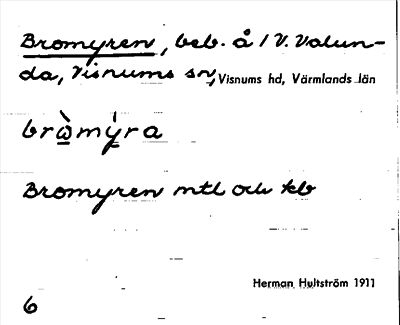 Bromyren, beb. å 1 V. Valun-
da, Visnums sn, Visnums hd, Värmlands län
bròmýra
Bromyren mtl och kb
Herman Hultström 1911
6